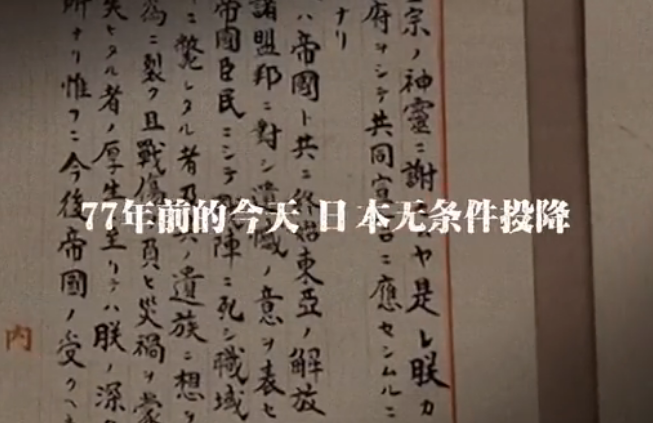 77年前的今天 日本无条件投降
宗ノ神靈ニ謝セムヤ是レ朕カ
府ヲシテ共同宣言ニ應セシムルニ
ナリ
ハ帝國ト共ニ終始東亞ノ解放
諸盟邦ニ對シ遺憾ノ意ヲ表セ
帝國臣民ニシテ陣ニ死シ職域
ニ斃レタル者及其ノ遺族ニ想ヲ
爲ニ裂ク且戰傷ヲ負ヒ災禍ヲ蒙
失ヒタル者ノ厚生ニ至リテハ朕ノ深
所ナリ惟フニ今後帝國ノ受クヘ
内